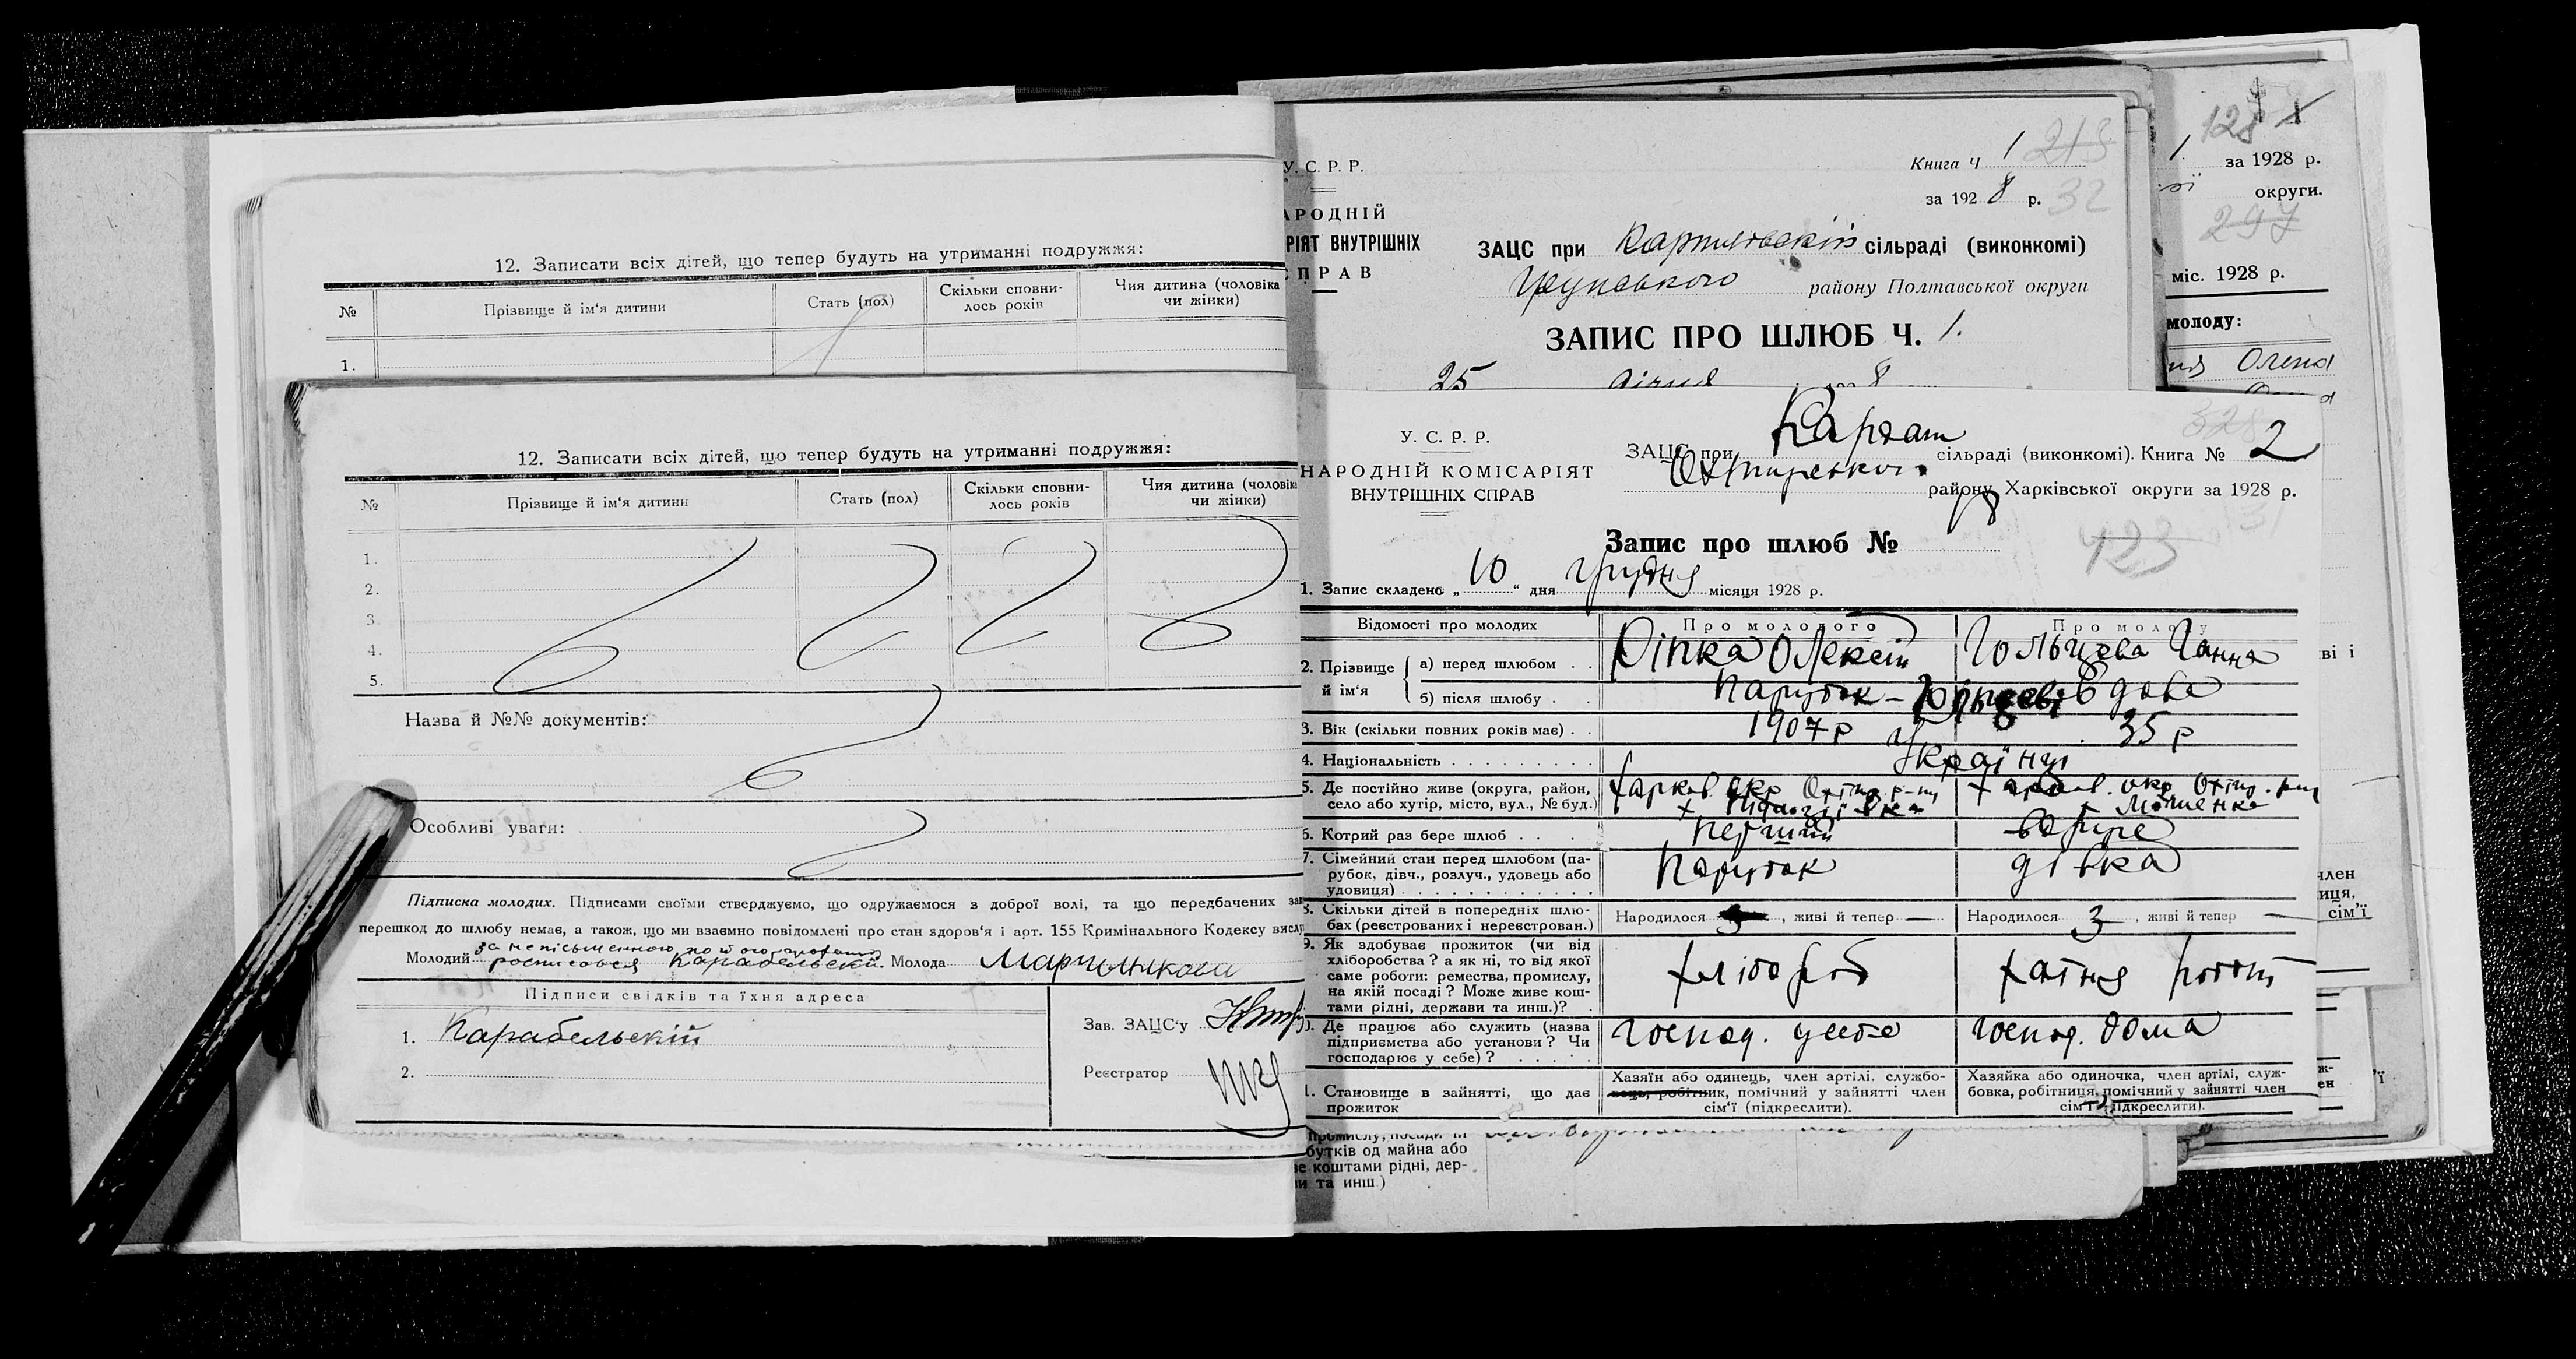 12. Записати всіх дітей, що тепер будуть на утриманні подружжя:
№ Прізвище й ім'я дитини Стать (пол) Скільки сповнилось років Чия дитина (чоловіка чи жінки)
1.
12. Записати всіх дітей, що тепер будуть на утриманні подружжя:
№ Прізвище й ім'я дитини Стать (пол) Скільки сповнилось років Чия дитина (чоловіка чи жінки)
1.
2.
3.
4.
5.
Назва й №№ документів:
Особливі уваги:
Підписка молодих. Підписами своїми стверджуємо, що одружаємося з доброї волі, та що передбачених
перешкод до шлюбу немає, а також, що ми взаємно повідомлені про стан здоров'я і арт. 155 Кримінального Кодексу
за неписьменного
Молодий росписався Карабельскій Молода
Підписи свідків та їхня адреса
1. Карабельскій
2.
Зав. ЗАЦС'у
Реєстратор
У. С. Р. Р.
АРОДНІЙ
РІЯТ ВНУТРІШНІХ
ПРАВ
Книга Ч 1 213
за 1928 р. 32
ЗАЦС при сільраді (виконкомі)
району Полтавської округи
ЗАПИС ПРО ШЛЮБ Ч. 1.
25 січня 8
128
1. за 1928 р.
округи.
297
міс. 1928 р.
молоду:
Олена
У. С. Р. Р.
НАРОДНІЙ КОМІСАРІЯТ
ВНУТРІШНІХ СПРАВ
ЗАЦС при сільраді (виконкомі). Книга № 2
Охтирського району Харківської округи за 1928 р.
Запис про шлюб № 78
423
1. Запис складено „ 10 “ дня грудня місяця 1928 р.
Відомості про молодих Про молодого Про молоду
2. Прізвище й ім'я а) перед шлюбом . . Ріпка Олексій Гольцева Ганна
б) після шлюбу . Парубок - вдова
3. Вік (скільки повних років має) . . 1907 р 35 р
4. Національність . . . . . . . . . Українці
5. Де постійно живе (округа, район,
село або хутір, місто, вул., № буд.) Харків. окр Охтир. р-ну х Харків. окр Охтир. р-ну х
6. Котрий раз бере шлюб . . . перший вдруге
7. Сімейний стан перед шлюбом (па-
рубок, дівч., розлуч., удовець або
удовиця) . . . . . . . . . . . . Парубок дівка
8. Скільки дітей в попередніх шлю-
бах (реєстрованих і нереєстрован.) Народилося , живі й тепер — Народилося 3 , живі й тепер —
9. Як здобуває прожиток (чи від
хліборобства? а як ні, то від якої
саме роботи: ремества, промислу,
на якій посаді? Може живе кош-
тами рідні, держави та инш.)? хлібороб хатня робот
Де працює або служить (назва
підприємства або установи? Чи
господарює у себе)? . . . . . Господ. у себе Господ. дома
1. Становище в зайнятті, що дає
прожиток
Хазяїн або одинець, член артілі, службо-
вець, робітник, помічний у зайнятті член
сім'ї (підкреслити).
Хазяйка або одиночка, член артілі, служ-
бовка, робітниця, помічний у зайнятті член
сім'ї (підкреслити).
бутків од майна або
коштами рідні, дер-
та инш.)
ві і
член
сім'ї